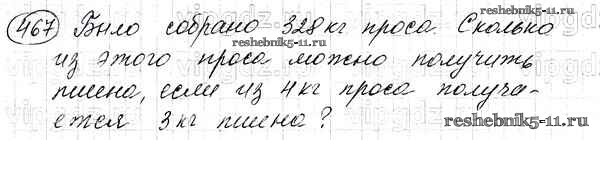 467 Было собрано 328 кг проса. Сколько
из этого проса можно получить
пшена, если из 4 кг проса получа-
ется 3 кг пшена?
reshebnik5-11.ru
reshebnik5-11.ru